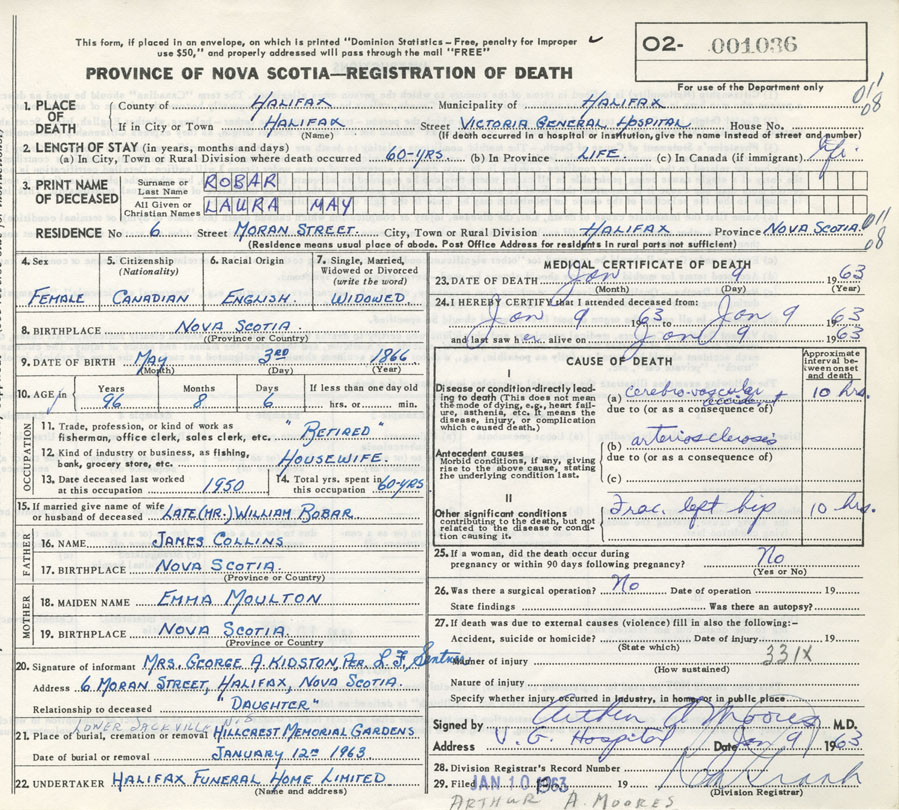 This form, if placed in an envelope, on which is printed "Dominion Statistics—Free, penalty for improper
use $50," and properly addressed will pass through the mail "FREE"
O2- 001036
PROVINCE OF NOVA SCOTIA—REGISTRATION OF DEATH
For use of the Department only
1. PLACE OF DEATH
County of HALIFAX Municipality of HALIFAX 011
If in City or Town HALIFAX Street VICTORIA GENERAL HOSPITAL House No. 08
(Name) (If death occurred in a hospital or institution, give the name instead of street and number)
2. LENGTH OF STAY (in years, months and days)
(a) In City, Town or Rural Division where death occurred 60-YRS. (b) In Province LIFE. (c) In Canada (if immigrant) life.
3. PRINT NAME OF DECEASED
Surname or Last Name ROBAR
All Given or Christian Names LAURA MAY
RESIDENCE No 6 Street MORAN STREET. City, Town or Rural Division HALIFAX Province NOVA SCOTIA. 011
(Residence means usual place of abode. Post Office Address for residents in rural parts not sufficient) 08
4. Sex FEMALE
5. Citizenship (Nationality) CANADIAN
6. Racial Origin ENGLISH.
7. Single, Married, Widowed or Divorced (write the word) WIDOWED
8. BIRTHPLACE NOVA SCOTIA.
(Province or Country)
9. DATE OF BIRTH MAY 3RD 1866
(Month) (Day) (Year)
10. AGE in Years 96 Months 8 Days 6 If less than one day old hrs. or min.
OCCUPATION
11. Trade, profession, or kind of work as fisherman, office clerk, sales clerk, etc. "RETIRED"
12. Kind of industry or business, as fishing, bank, grocery store, etc. HOUSEWIFE.
13. Date deceased last worked at this occupation 1950
14. Total yrs. spent in this occupation 60-YRS
15. If married give name of wife or husband of deceased LATE (MR.) WILLIAM ROBAR
FATHER
16. NAME JAMES COLLINS
17. BIRTHPLACE NOVA SCOTIA.
(Province or Country)
MOTHER
18. MAIDEN NAME EMMA MOULTON
19. BIRTHPLACE NOVA SCOTIA.
(Province or Country)
20. Signature of informant MRS. GEORGE A. KIDSTON, PER L. F.
Address 6 MORAN STREET, HALIFAX, NOVA SCOTIA.
Relationship to deceased "DAUGHTER"
LOWER SACKVILLE N.S
21. Place of burial, cremation or removal HILLCREST MEMORIAL GARDENS
Date of burial or removal JANUARY 12th 1963
22. UNDERTAKER HALIFAX FUNERAL HOME LIMITED
(Name and address)
MEDICAL CERTIFICATE OF DEATH
23. DATE OF DEATH Jan 9 1963
(Month) (Day) (Year)
24. I HEREBY CERTIFY that I attended deceased from:
Jan 9 1963 to Jan 9 1963
and last saw her alive on Jan 9 1963
CAUSE OF DEATH
Approximate interval between onset and death
I
Disease or condition directly leading to death (This does not mean the mode of dying, e.g., heart failure, asthenia, etc. It means the disease, injury, or complication which caused death.)
(a) cerebro-vascular accident 10 hrs.
due to (or as a consequence of)
Antecedent causes
Morbid conditions, if any, giving rise to the above cause, stating the underlying condition last.
(b) arteriosclerosis
due to (or as a consequence of)
(c)
II
Other significant conditions contributing to the death, but not related to the disease or condition causing it.
Frac. left hip 10 hrs.
25. If a woman, did the death occur during pregnancy or within 90 days following pregnancy? No
(Yes or No)
26. Was there a surgical operation? No Date of operation 19
State findings Was there an autopsy?
27. If death was due to external causes (violence) fill in also the following:-
Accident, suicide or homicide? Date of injury 19
(State which) 331X
Manner of injury
(How sustained)
Nature of injury
Specify whether injury occurred in industry, in home, or in public place
Signed by Arthur A Moores M.D.
Address V. G. Hospital Date Jan 9 1963
28. Division Registrar's Record Number
29. Filed JAN 10 1963 19
(Division Registrar)
ARTHUR A. MOORES